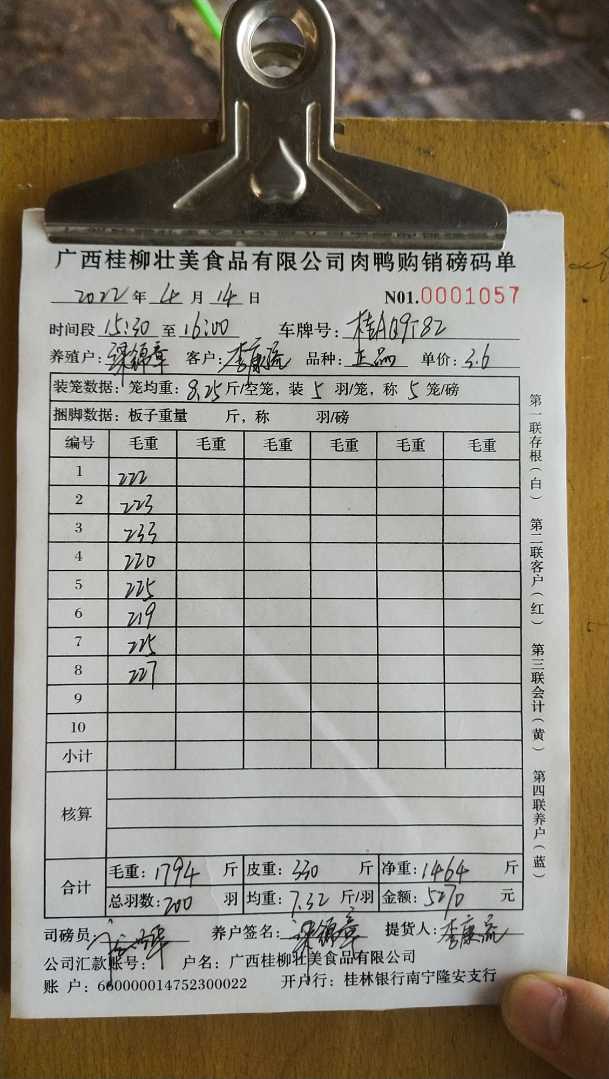 广西桂柳壮美食品有限公司肉鸭购销磅码单
2022 年 4 月 14 日 N01.0001057
时间段 15:30 至 16:00 车牌号: 桂AQ9T82
养殖户: 梁锦章 客户: 李康流 品种: 正品 单价: 3.6
装笼数据: 笼均重: 8.25 斤/空笼, 装 5 羽/笼, 称 5 笼/磅
捆脚数据: 板子重量 斤, 称 羽/磅
编号 毛重 毛重 毛重 毛重 毛重 毛重
1 222
2 223
3 233
4 220
5 225
6 219
7 225
8 227
9
10
小计
核算
合计 毛重: 1794 斤 皮重: 330 斤 净重: 1464 斤
总羽数: 200 羽 均重: 7.32 斤/羽 金额: 5270 元
司磅员: 养户签名: 梁锦章 提货人: 李康流
公司汇款账号: 户名: 广西桂柳壮美食品有限公司
账 户: 660000014752300022 开户行: 桂林银行南宁隆安支行
第一联存根(白) 第二联客户(红) 第三联会计(黄) 第四联养户(蓝)